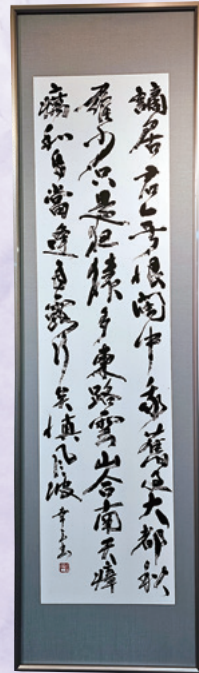 謫居君無恨閩中我舊過大都秋
雁少只是夜猿多東路雲山合南天瘴
癘和自當逢雨露行矣慎風波